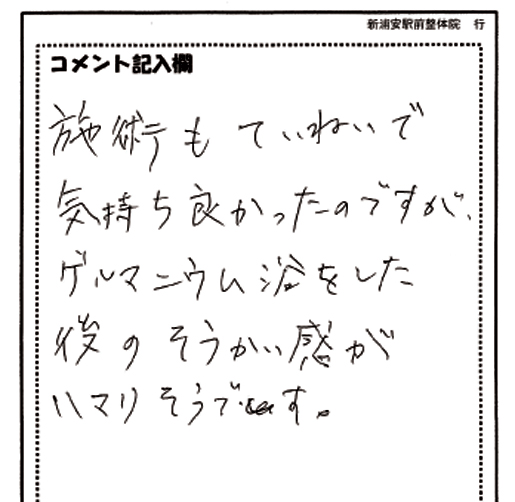 新浦安駅前整体院 行
コメント記入欄
施術もていねいで
気持ち良かったのですが、
ゲルマニウム浴をした
後のそうかい感が
ハマりそうです。